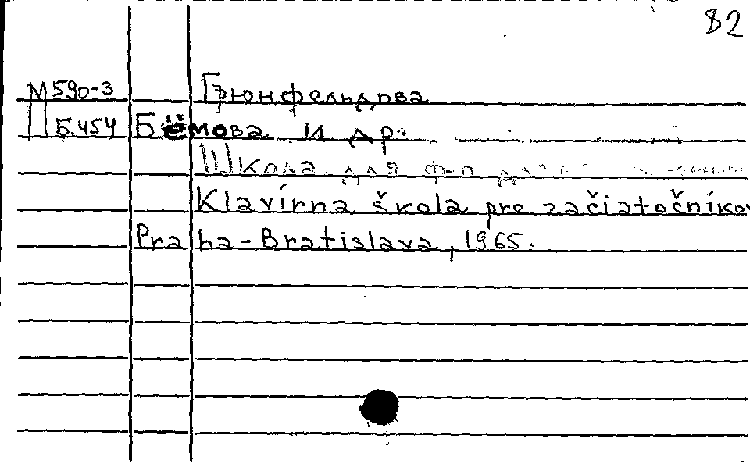 82
М590-3 Грюнфельдова
Б.454 Бёмова и др.
Школа для ф-п
Klavírna škola pre začiatočníkov
Praha-Bratislava, 1965.